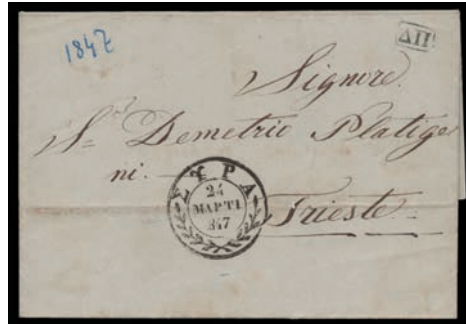 1847
ΔΠ
Signore.
Sr. Demetrio Platige
ni.
ΣΥΡΑ
24
ΜΑΡΤΙ
847
Trieste